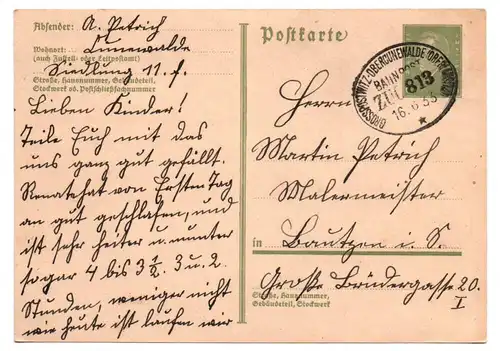 Absender: A. Petrich
Wohnort: Cunewalde
(auch Zustell- oder Leitpostamt)
Siedlung 11. f.
Straße, Hausnummer, Gebäudeteil,
Stockwerk od. Postschließfachnummer
Lieben Kinder!
Teile Euch mit das
uns ganz gut gefällt.
Renate hat von Ersten Tag
an gut geschlafen, und
ist sehr heiter u. munter
sogar 4 bis 3 1/2. 3 u. 2.
Stunden, weniger nicht
wie heute ist laufen wir
Postkarte
GROSSPOSTWITZ-OBERCUNEWALDE
BAHNPOST
ZUG 813
16.6.33
Herrn
Martin Petrich
Malermeister
in Bautzen i. S.
Große Brüdergasse 20.
I
Straße, Hausnummer,
Gebäudeteil, Stockwerk